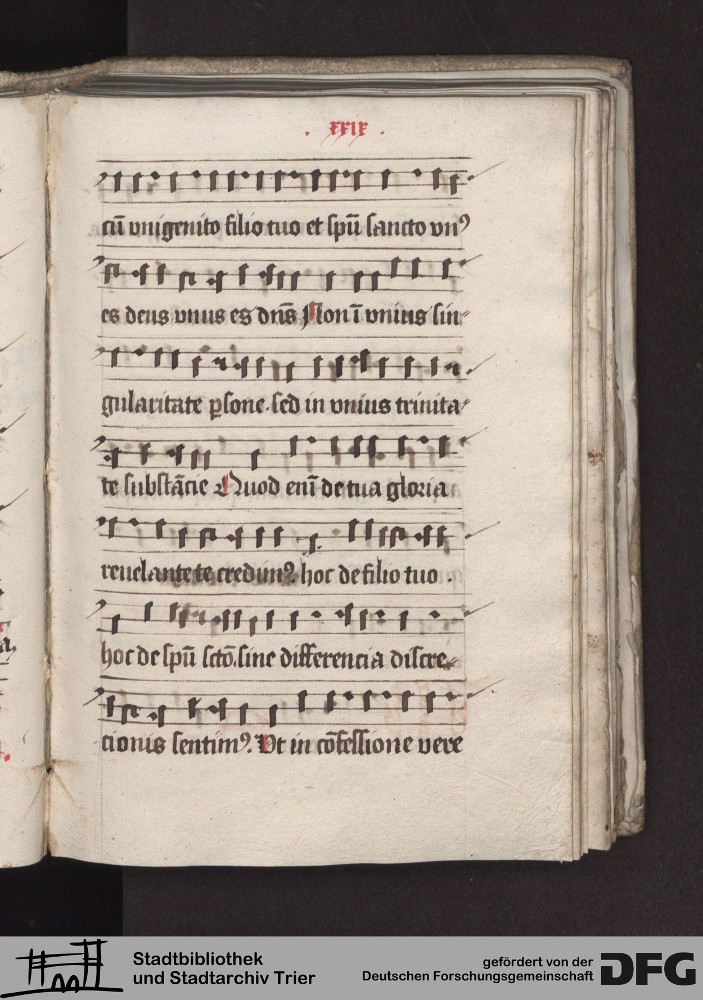 . xxix .
cū vnigenito filio tuo et spū sancto vnꝰ
es deus vnus es dn̄s Non ī vnius sin-
gularitate ꝑsone. sed in vnius trinita-
te substācie Quod enī de tua gloria
reuelante te credimꝰ. hoc de filio tuo .
hoc de spū scō. sine differencia discre-
cionis sentimꝰ. Vt in cōfessione vere
Stadtbibliothek
und Stadtarchiv Trier
gefördert von der
Deutschen Forschungsgemeinschaft
DFG